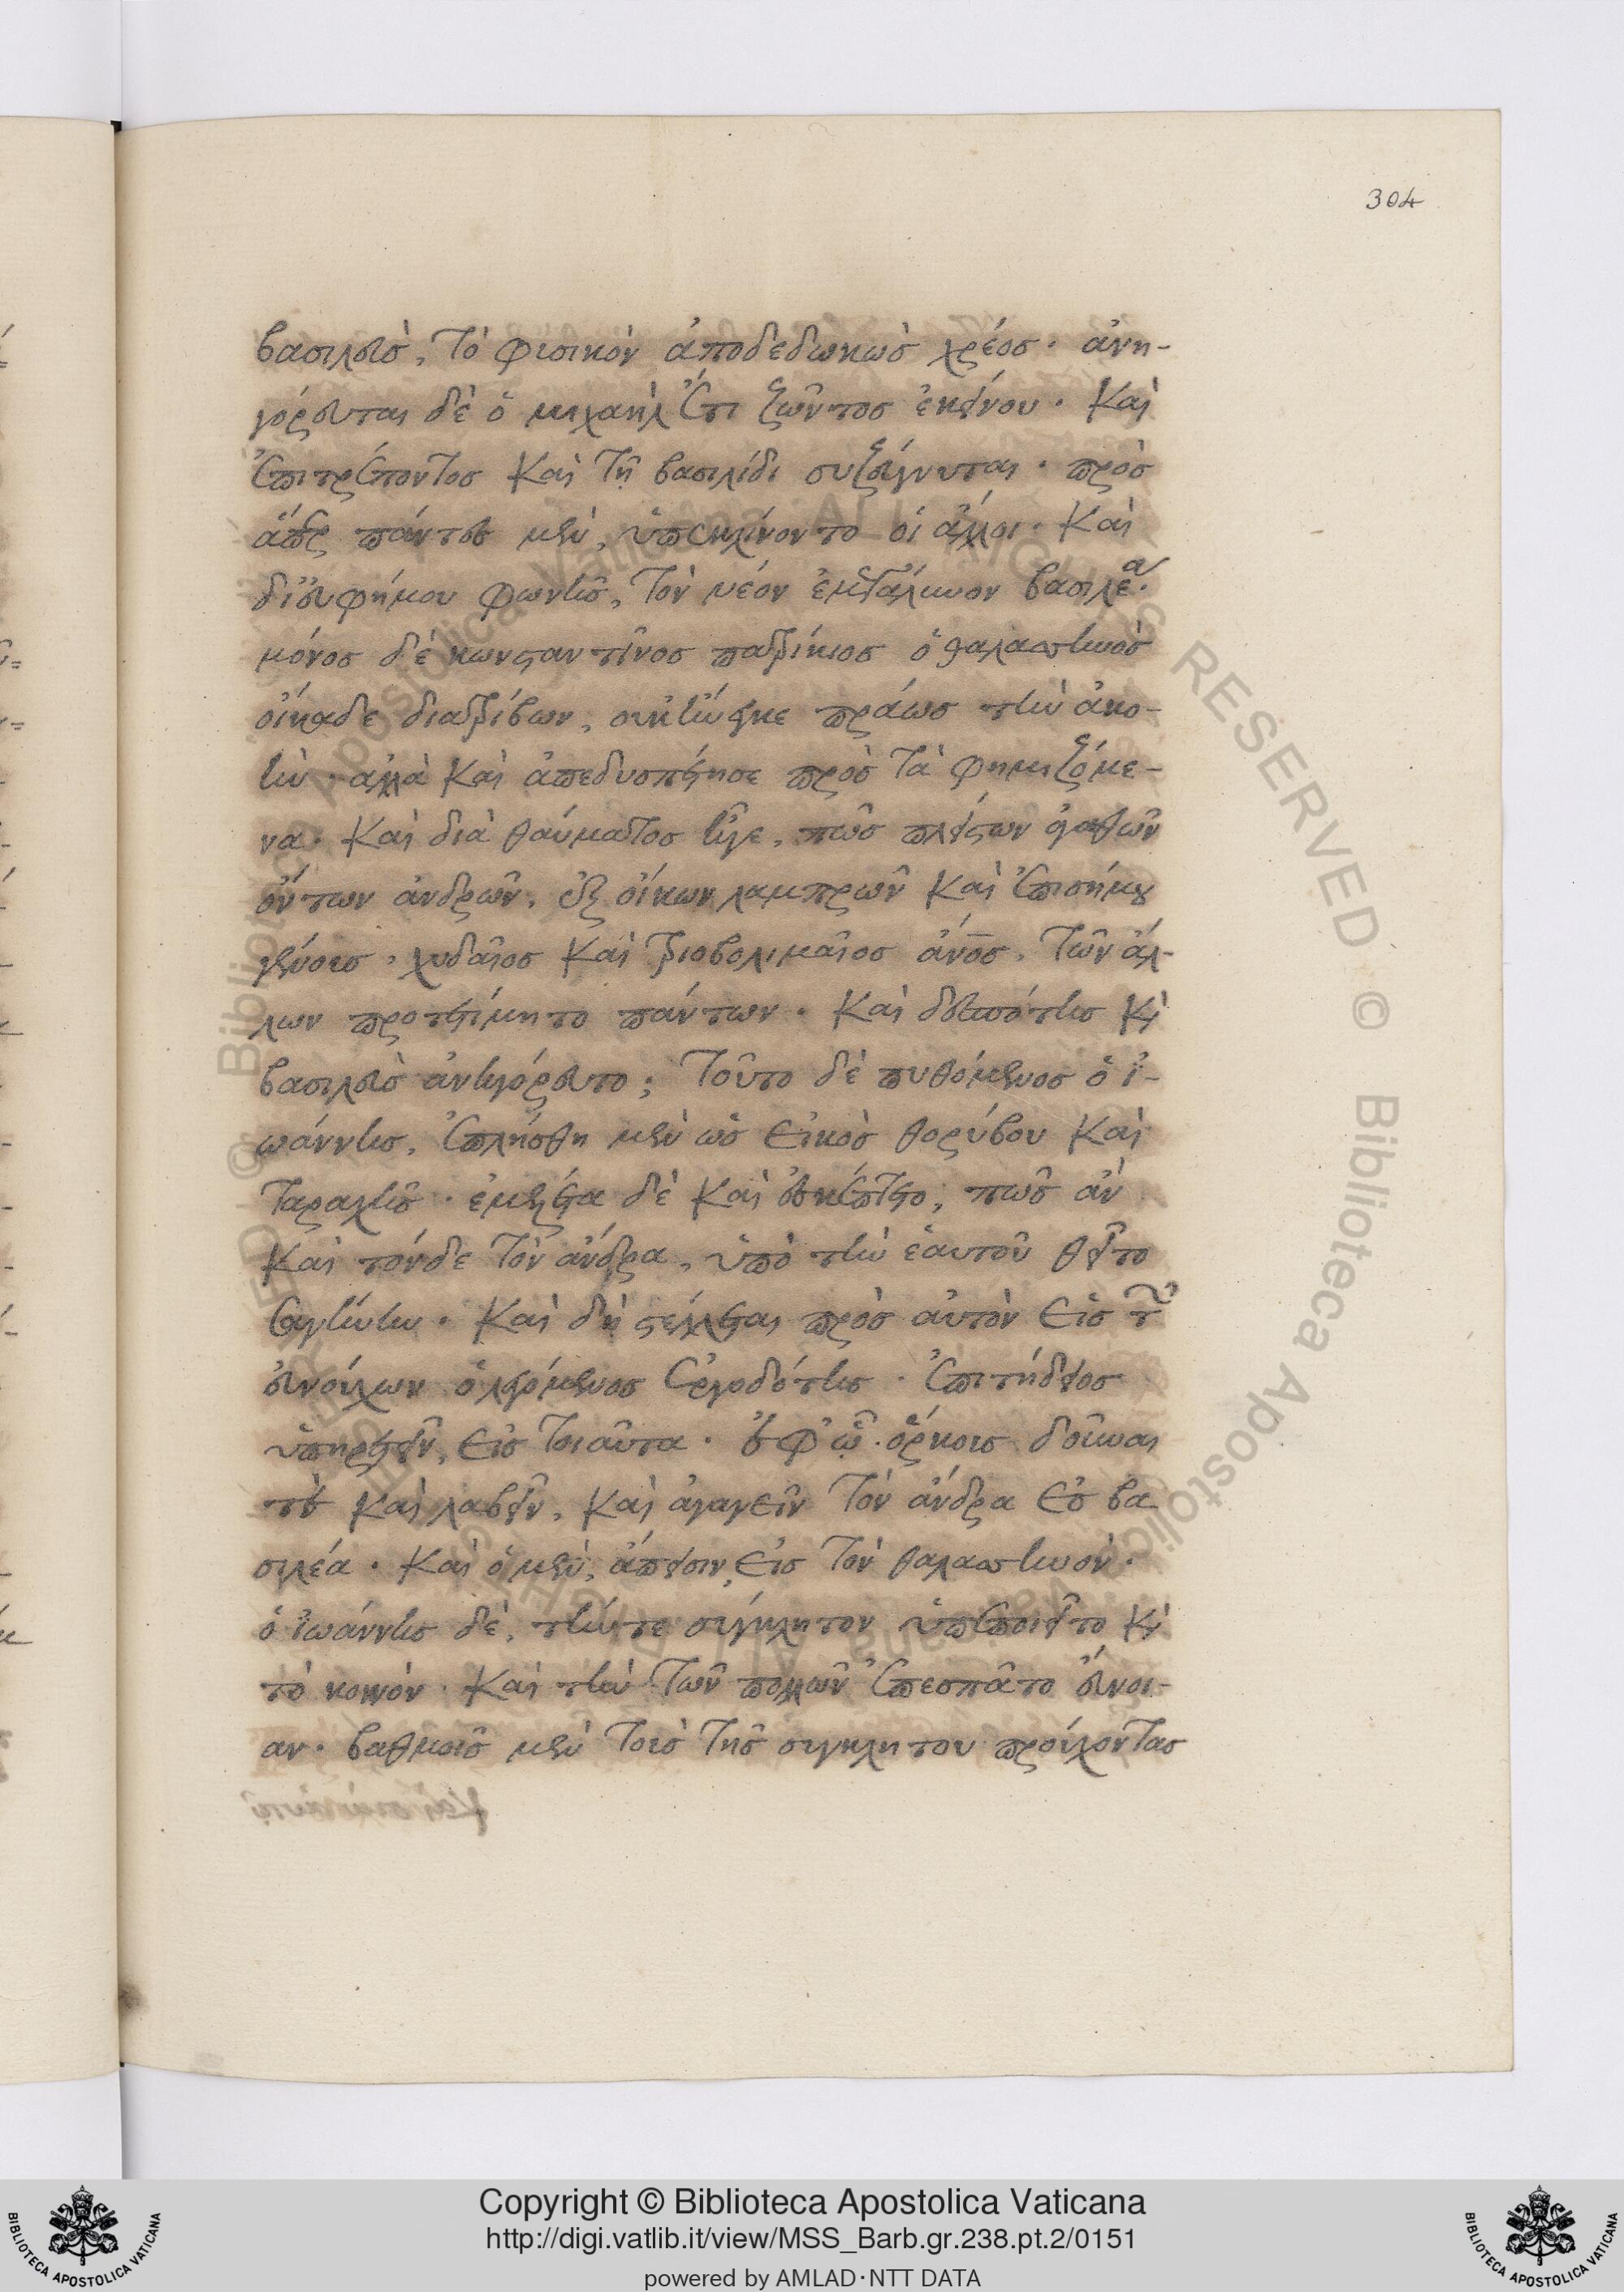 304
βασιλεὺσ, τὸ φισικὸν ἀποδεδωκὼσ χρέοσ· ἀνη-
γόρευται δὲ ὁ μιχαὴλ ἔτι ζῶντοσ ἐκείνου· Καὶ
ἐπιτρέποντοσ Καὶ τῇ βασιλίδι συζεύγνυται· πρὸσ
ἅπερ πάντεσ μὲν, ὑπεκλίνοντο οἱ ἄλλοι· Καὶ
δι εὐφήμου φωνῆσ, τὸν νέον βασιλέα·
μόνοσ δὲ κωνσταντῖνοσ πατρίκιοσ ὁ θαλασσηνὸσ
οἴκαδε διατρίβων, οὐκ ἤνεγκε πράωσ τὴν ἀκο-
ὴν· ἀλλὰ Καὶ ἀπεδυσπέτησε πρὸσ τὰ φημιζόμε-
να· Καὶ διὰ θαύματοσ ἦγε, πῶσ πλείστων ἀγαθῶν
ὄντων ἀνδρῶν, ἐξ οἴκων λαμπρῶν Καὶ ἐπισήμου
γένουσ, χυδαῖοσ Καὶ τριοβολιμαῖοσ ἄνοσ, τῶν ἄλ-
λων προτετίμητο πάντων· Καὶ δεσπότησ Κὶ
βασιλεὺσ ἀνηγόρευτο; Τοῦτο δὲ πυθόμενοσ ὁ ἰ-
ωάννησ, ἐπλήσθη μὲν ὡσ εἰκὸσ θορύβου Καὶ
ταραχῆσ· ἐμερίζετο δὲ Καὶ ἐσκέπτετο, πῶσ ἂν
Καὶ τόνδε τὸν ἄνδρα, ὑπὸ τὴν ἑαυτοῦ θεῖτο
σαγήνην· Καὶ δὴ στέλλεται πρὸσ αὐτὸν εἰσ τῶν
εὐνούχων ὁ λεγόμενοσ ἐργοδότησ· ἐπιτήδειοσ
ὑπηρετεῖν, εἰσ τοιαῦτα· ἐφ ᾧ ὅρκουσ δοῦναι
τὲ Καὶ λαβεῖν, Καὶ ἀγαγεῖν τὸν ἄνδρα εἰσ βα
σιλέα· Καὶ ὁ μὲν, ἄπεισιν, εἰσ τὸν θαλασσηνὸν·
ὁ ἰωάννησ δὲ, τήν τε σύγκλητον ὑπεποιεῖτο Κὶ
τὸ κοινὸν· Καὶ τὴν τῶν πολλῶν ἐπεσπᾶτο εὔνοι-
αν· βαθμοῖσ μὲν τοὺσ τῆσ συγκλήτου προύχοντασ
Copyright © Biblioteca Apostolica Vaticana
http://digi.vatlib.it/view/MSS_Barb.gr.238.pt.2/0151
powered by AMLAD·NTT DATA